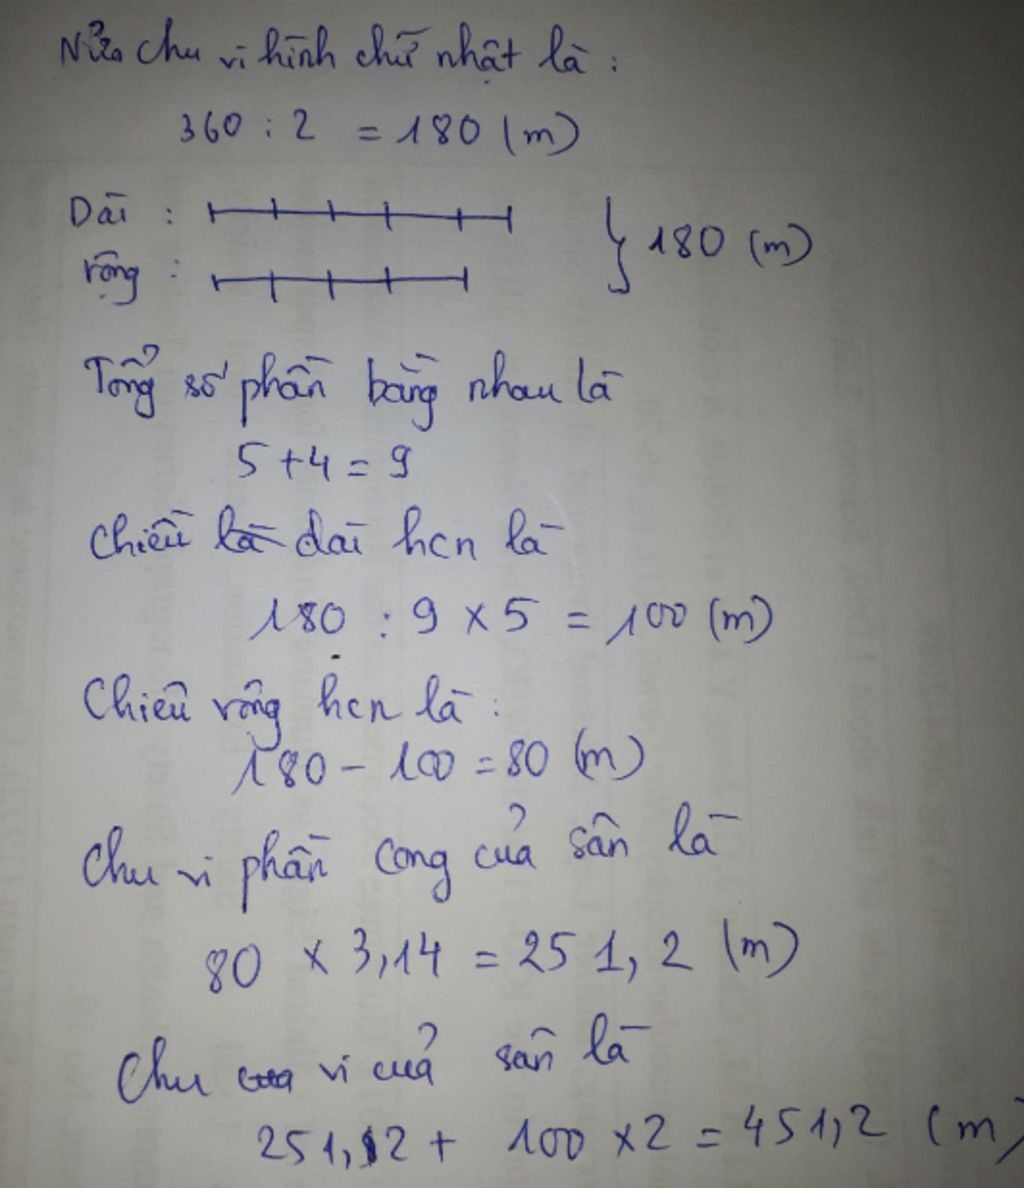 Nửa chu vi hình chữ nhật là :
360 : 2 = 180 (m)
Dài :
rộng :
} 180 (m)
Tổng số phần bằng nhau là
5 + 4 = 9
Chiều là dài hcn là
180 : 9 x 5 = 100 (m)
Chiều rộng hcn là :
180 - 100 = 80 (m)
Chu vi phần cong của sân là
80 x 3,14 = 251,2 (m)
Chu của vi của sân là
251,2 + 100 x 2 = 451,2 (m)